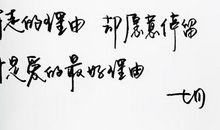 走的理由 却愿意停留
是爱的最好理由